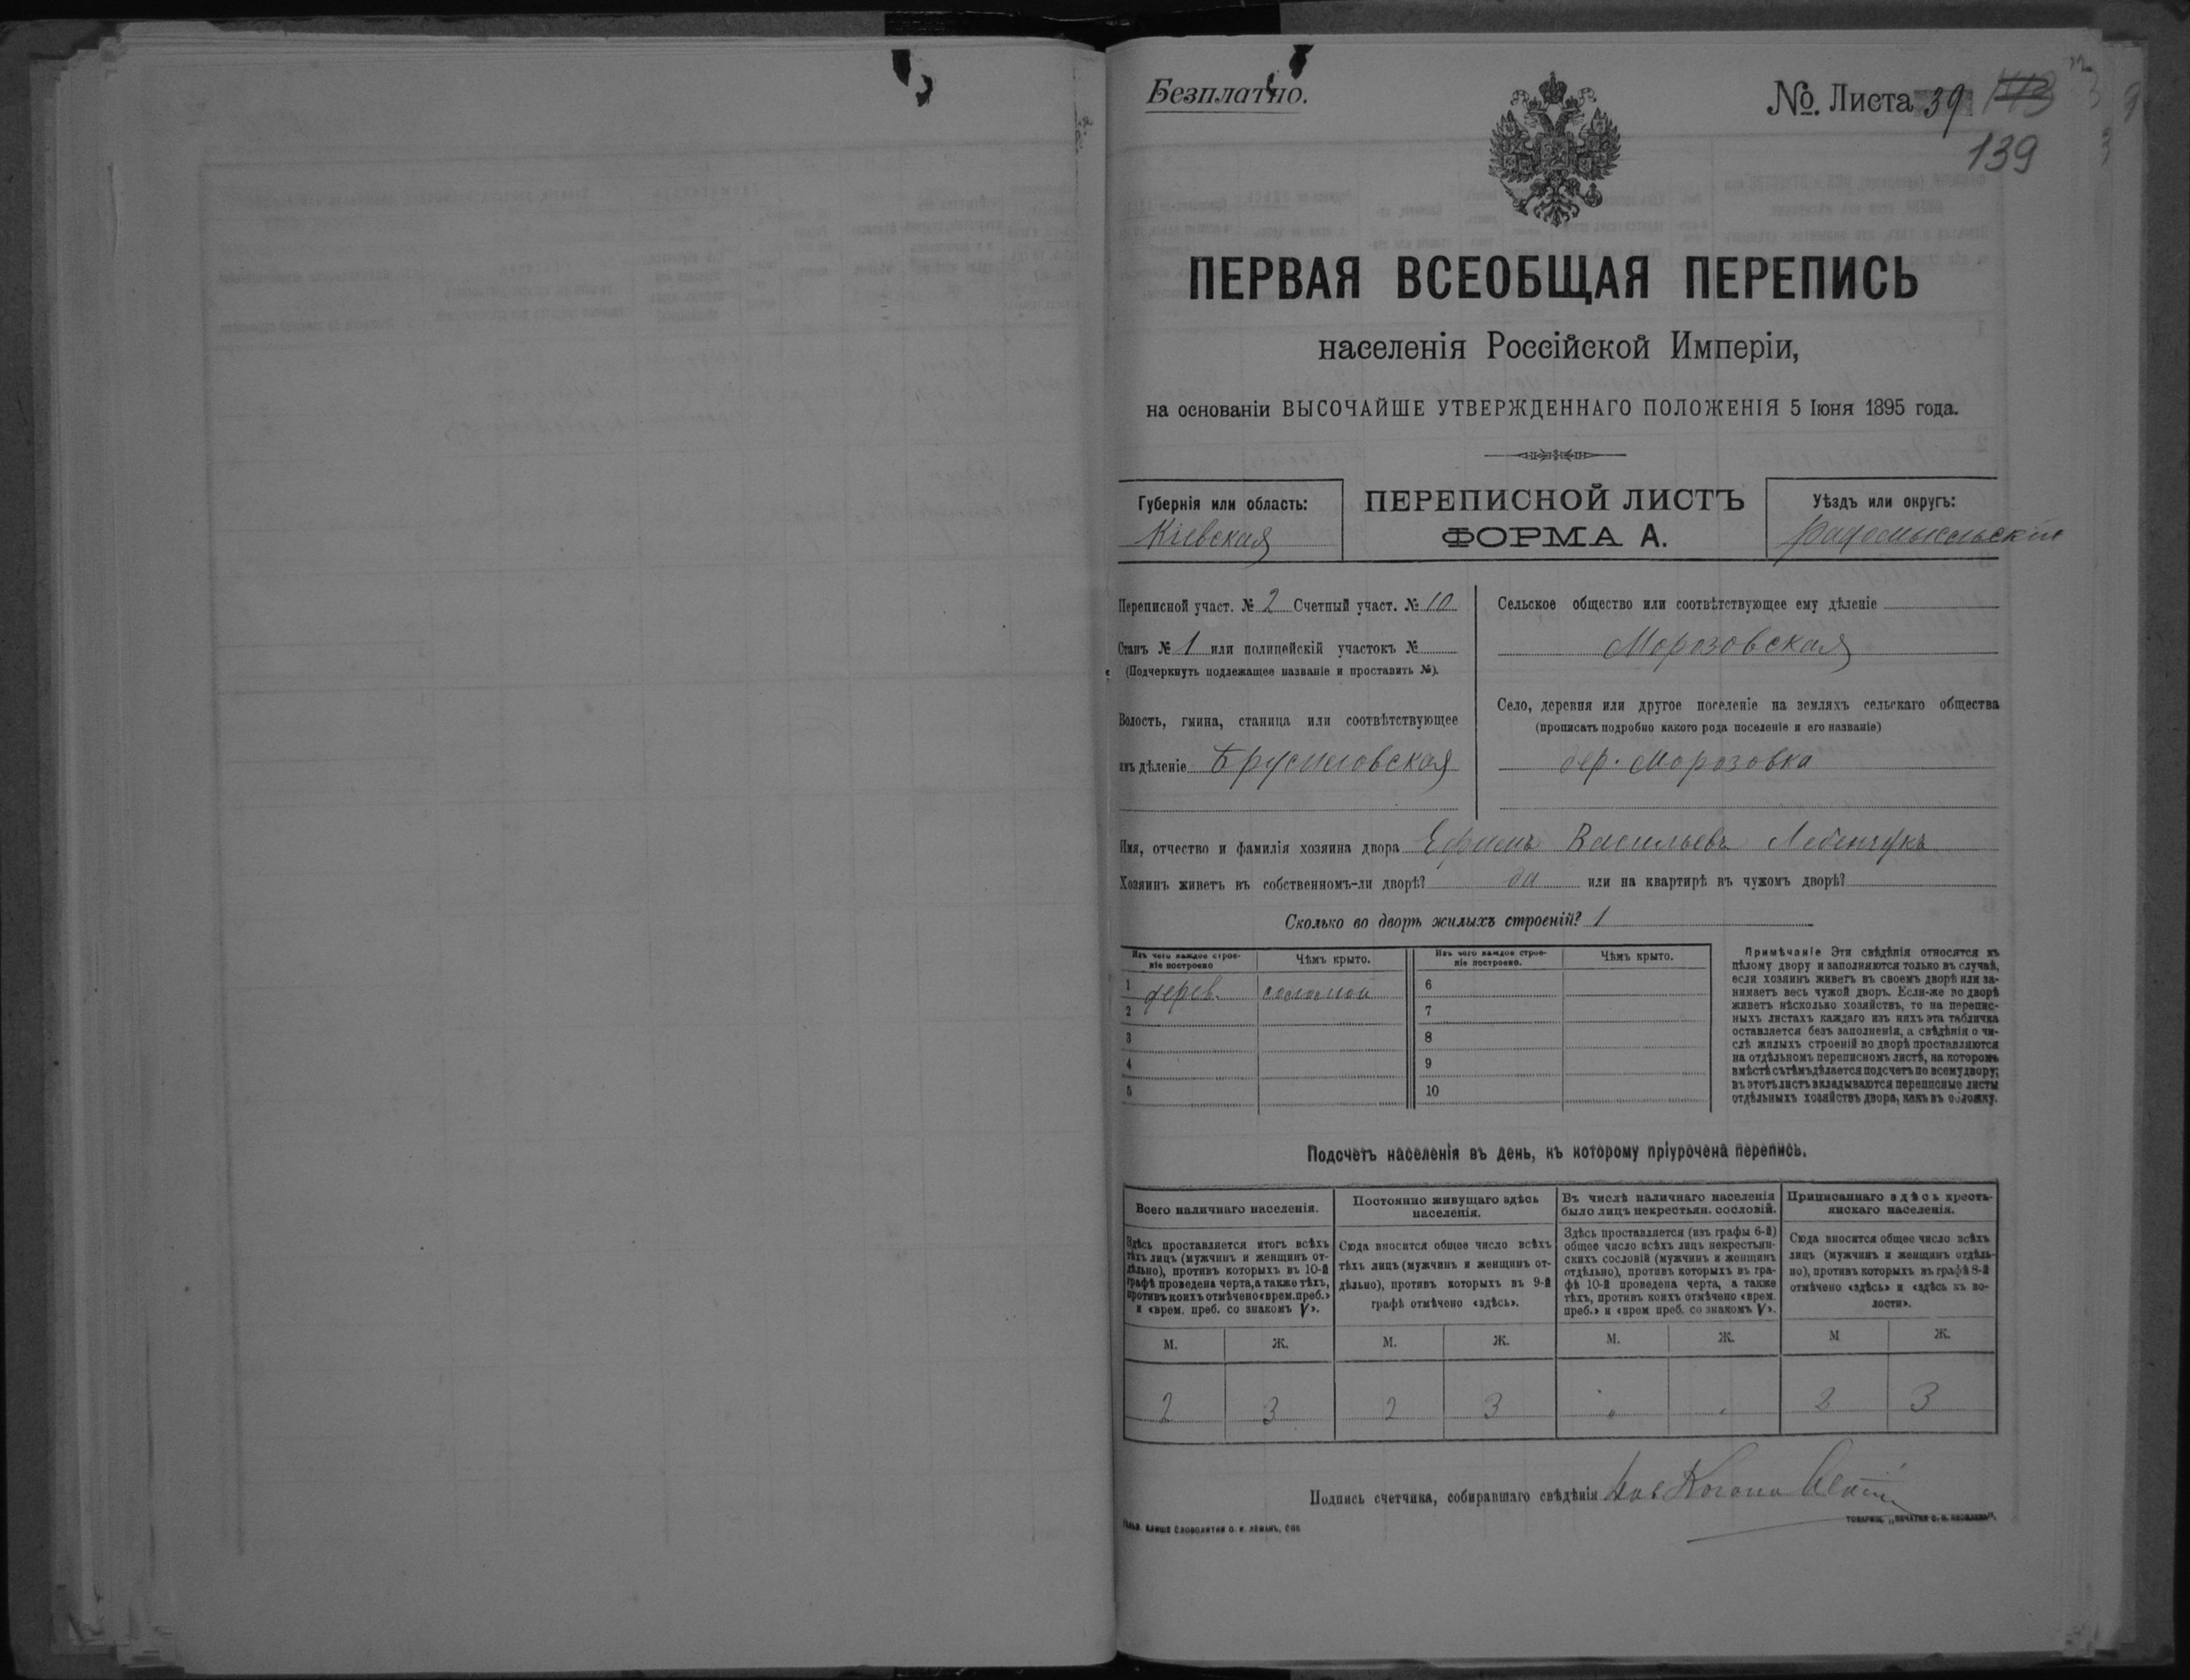 Безплатно.
№. Листа 39
139
ПЕРВАЯ ВСЕОБЩАЯ ПЕРЕПИСЬ
населенія Россійской Имперіи,
на основаніи ВЫСОЧАЙШЕ УТВЕРЖДЕННАГО ПОЛОЖЕНІЯ 5 Іюня 1895 года.
Губернія или область:
Кіевская
ПЕРЕПИСНОЙ ЛИСТЪ
ФОРМА А.
Уѣздъ или округъ:
Радомысльскій
Переписной участ. № 2 Счетный участ. № 10
Станъ № 1 или полицейскій участокъ №
(Подчеркнуть подлежащее названіе и проставить №).
Волость, гмина, станица или соотвѣтствующее
имъ дѣленіе Брусиловская
Сельское общество или соотвѣтствующее ему дѣленіе
Морозовская
Село, деревня или другое поселеніе на земляхъ сельскаго общества
(прописать подробно какого рода поселеніе и его названіе)
дер. Морозовка
Имя, отчество и фамилія хозяина двора Ефимъ Васильевъ
Хозяинъ живетъ въ собственномъ-ли дворѣ? да или на квартирѣ въ чужомъ дворѣ?
Сколько во дворѣ жилыхъ строеній? 1
Изъ чего каждое строе-
ніе построено
Чѣмъ крыто.
Изъ чего каждое строе-
ніе построено.
Чѣмъ крыто.
1 дерев. соломой 6
2 7
3 8
4 9
5 10
Примѣчаніе Эти свѣдѣнія относятся къ
цѣлому двору и заполняются только въ случаѣ,
если хозяинъ живетъ въ своемъ дворѣ или за-
нимаетъ весь чужой дворъ. Если-же во дворѣ
живетъ нѣсколько хозяйствъ, то на перепис-
ныхъ листахъ каждаго изъ нихъ эта табличка
оставляется безъ заполненія, а свѣдѣнія о чи-
слѣ жилыхъ строеній во дворѣ проставляются
на отдѣльномъ переписномъ листѣ, на которомъ
вмѣстѣ съ тѣмъ дѣлается подсчетъ по всему двору;
въ этотъ листъ вкладываются переписные листы
отдѣльныхъ хозяйствъ двора, какъ въ обложку.
Подсчетъ населенія въ день, къ которому пріурочена перепись.
Всего наличнаго населенія.
Здѣсь проставляется итогъ всѣхъ
тѣхъ лицъ (мужчинъ и женщинъ от-
дѣльно), противъ которыхъ въ 10-й
графѣ проведена черта, а также тѣхъ,
противъ коихъ отмѣчено «врем. преб.»
и «врем. преб. со знакомъ V».
Постоянно живущаго здѣсь
населенія.
Сюда вносится общее число всѣхъ
тѣхъ лицъ (мужчинъ и женщинъ от-
дѣльно), противъ которыхъ въ 9-й
графѣ отмѣчено «здѣсь».
Въ числѣ наличнаго населенія
было лицъ некрестьян. сословій.
Здѣсь проставляется (изъ графы 6-й)
общее число всѣхъ лицъ некрестьян-
скихъ сословій (мужчинъ и женщинъ
отдѣльно), противъ которыхъ въ гра-
фѣ 10-й проведена черта, а также
тѣхъ, противъ коихъ отмѣчено «врем.
преб.» и «врем преб. со знакомъ V».
Приписаннаго здѣсь кресть-
янскаго населенія.
Сюда вносится общее число всѣхъ
лицъ (мужчинъ и женщинъ отдѣль-
но), противъ которыхъ въ графѣ 8-й
отмѣчено «здѣсь» и «здѣсь къ во-
лости».
М. Ж. М. Ж. М. Ж. М Ж.
2 3 2 3 " " 2 3
Подпись счетчика, собиравшаго свѣдѣнія